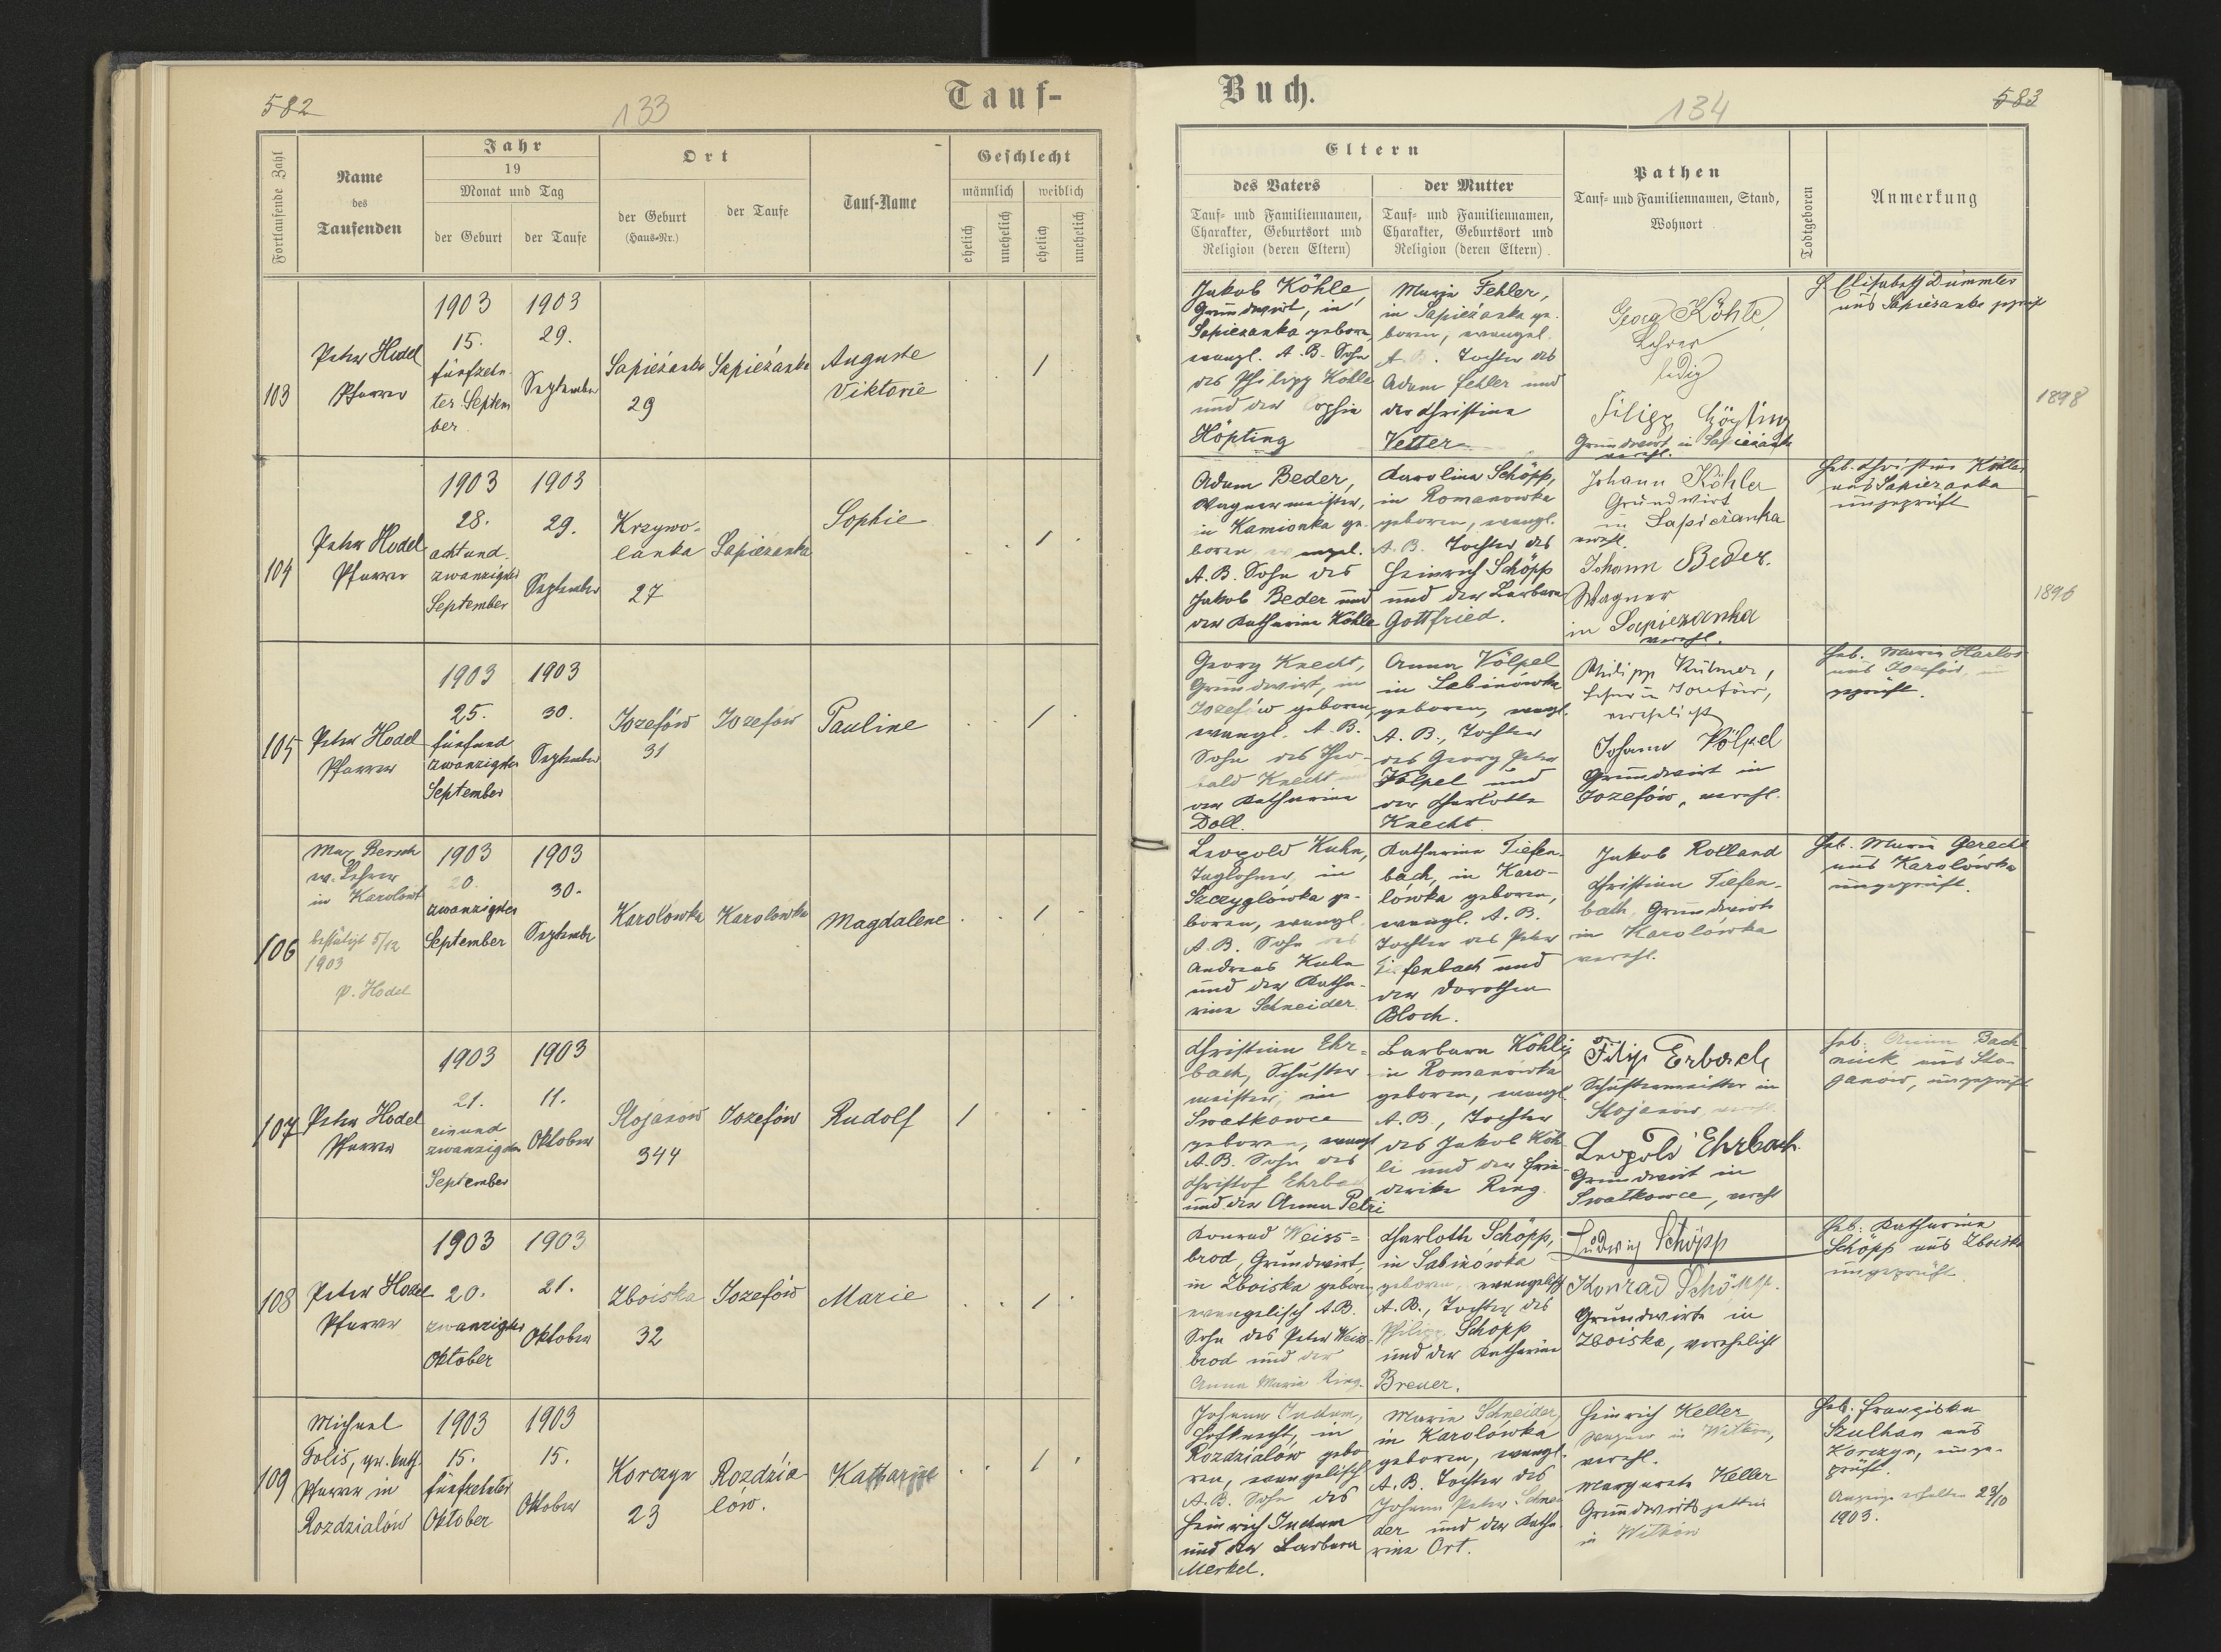 582
133
Tauf-
Fortlaufende Zahl
Name
des
Taufenden
Jahr
19
Monat und Tag
der Geburt
der Taufe
Ort
der Geburt
(Haus-Nr.)
der Taufe
Tauf-Name
Geschlecht
männlich
weiblich
ehelich
unehelich
ehelich
unehelich
103
Peter Hodel
Pfarrer
1903
15.
fünfzehn-
ter Septem
ber
1903
29.
September
Sapieżanka
29
Sapieżanka
Auguste
Viktorie
1
104
Peter Hodel
Pfarrer
1903
28.
achtund-
zwanzigster
September
1903
29.
September
Krzywo-
lanka
27
Sapieżanka
Sophie
1
105
Peter Hodel
Pfarrer
1903
25.
fünfund
zwanzigster
September
1903
30.
September
Jozefów
31
Jozefów
Pauline
1
106
Max Bersch
ev. Lehrer
in Karolówk
bestätigt 5/12
1903
P. Hodel
1903
20.
zwanzigster
September
1903
30.
September
Karolówka
Karolowka
Magdalene
1
107
Peter Hodel
Pfarrer
1903
21.
einund
zwanzigster
September
1903
11.
Oktober
Stojanow
344
Jozefów
Rudolf
1
108
Peter Hodel
Pfarrer
1903
20.
zwanzigster
Oktober
1903
21.
Oktober
Zboiska
32
Jozefów
Marie
1
109
Michael
Solis, gr. kath.
Pfarrer in
Rozdzialów
1903
15.
fünfzehnter
Oktober
1903
15.
Oktober
Korczyn
23
Rozdzia
lów.
Katharine
1
Buch.
134
583
Eltern
des Vaters
Tauf- und Familiennamen,
Charakter, Geburtsort und
Religion (deren Eltern)
der Mutter
Tauf- und Familiennamen,
Charakter, Geburtsort und
Religion (deren Eltern)
Pathen
Tauf- und Familiennamen, Stand,
Wohnort
Todtgeboren
Anmerkung
Jakob Köhle,
Grundwirt, in
Sapiezanka geboren,
evangl. A. B. Sohn
des Philipp Köhle
und der Sophie
Höpting
Maria Fehler,
in Sapieżanka ge-
boren, evangel.
A. B. Tochter des
Adam Fehler und
der Christine
Vetter
Georg Köhle,
Lehrer
ledig
Filipp Höpting
Grundwirt in Sapieżank
verehl.
H. Elisabeth Dümmler
aus Sapiezanka
1898
Adam Beder,
Wagnermeister,
in Kamionka ge-
boren, evangel.
A. B. Sohn des
Jakob Beder und
der Katharina Köhle
Karolina Schöpp,
in Romanowka
geboren, evangl.
A. B. Tochter des
Heinrich Schöpp
und der Barbara
Gottfried.
Johann Köhler
Grundwirt
in Sapieżanka
verehl.
Johann Beder.
Wagner
in Sapiezanka
verehl.
Heb. Christine Köhler
aus Sapiezanka
ungeprüft
1896
Georg Knecht,
Grundwirt, in
Jozefów geboren,
evangl. A. B.
Sohn des Theo-
bald Knecht und
der Katharina
Doll.
Anna Völpel
in Sabinówka
geboren, evangl.
A. B., Tochter
des Georg Peter
Völpel und
der Charlotte
Knecht.
Philipp Kübner,
Lehrer in Jozefów,
verehelicht
Johann Völpel
Grundwirt in
Jozefów, verehl.
Heb. Maria Harlos
aus Jozefów, un
geprüft.
Leopold Kuhn,
Taglöhner, in
Szczyglówka ge-
boren, evangl.
A. B. Sohn des
Andreas Kuhn
und der Katha-
rina Schneider
Katharina Tiefen-
bach, in Karo-
lówka geboren,
evangl. A. B.
Tochter des Peter
Tiefenbach und
der Dorothea
Bloch.
Jakob Rolland
Christian Tiefen-
bach, Grundwirte
in Karolówka
verehl.
Heb. Maria Gerecht
aus Karolówka
ungeprüft.
Christian Ehr-
bach, Schuster
meister, in
Swatkowce
geboren, evangl
A. B. Sohn des
Christof Ehrbach
und der Anna Petri
Barbara Köhli,
in Romanowka
geboren, evangl.
A. B., Tochter
des Jakob Köh
li und der Frie-
derike Ring.
Filip Erbach
Schustermeister in
Stojanów, verehl.
Leopold Ehrbach.
Grundwirt in
Swatkowce, verehl
Heb. Anna Bach
nick aus Sto-
janow, ungeprüft
Konrad Weiss=
brod, Grundwirt,
in Zboiska geboren,
evangelisch A. B.
Sohn des Peter Weiss-
brod und der
Anna Maria Ring.
Charlotte Schöpp,
in Sabinówka
geboren, evangelisch
A. B., Tochter des
Philipp Schöpp
und der Katharina
Breuer.
Ludwig Schöpp
Konrad Schöpp.
Grundwirte in
Zboiska, verehelicht
Heb. Katharina
Schöpp aus Zboiska
ungeprüft.
Johann Indum,
Hofknecht, in
Rozdzialów gebo
ren, evangelisch
A. B. Sohn des
Heinrich Indum
und der Barbara
Merkel.
Maria Schneider,
in Karolówka
geboren, evangl.
A. B. Tochter des
Johann Peter Schnei
der und der Katha-
rina Ort.
Heinrich Keller
in Witków,
verehl.
Margareta Keller
Grundwirtsgattin
in Witków
Heb. Franziska
Szulhan aus
Korczyn, unge-
prüft.
Anzeige erhalten 23/10
1903.